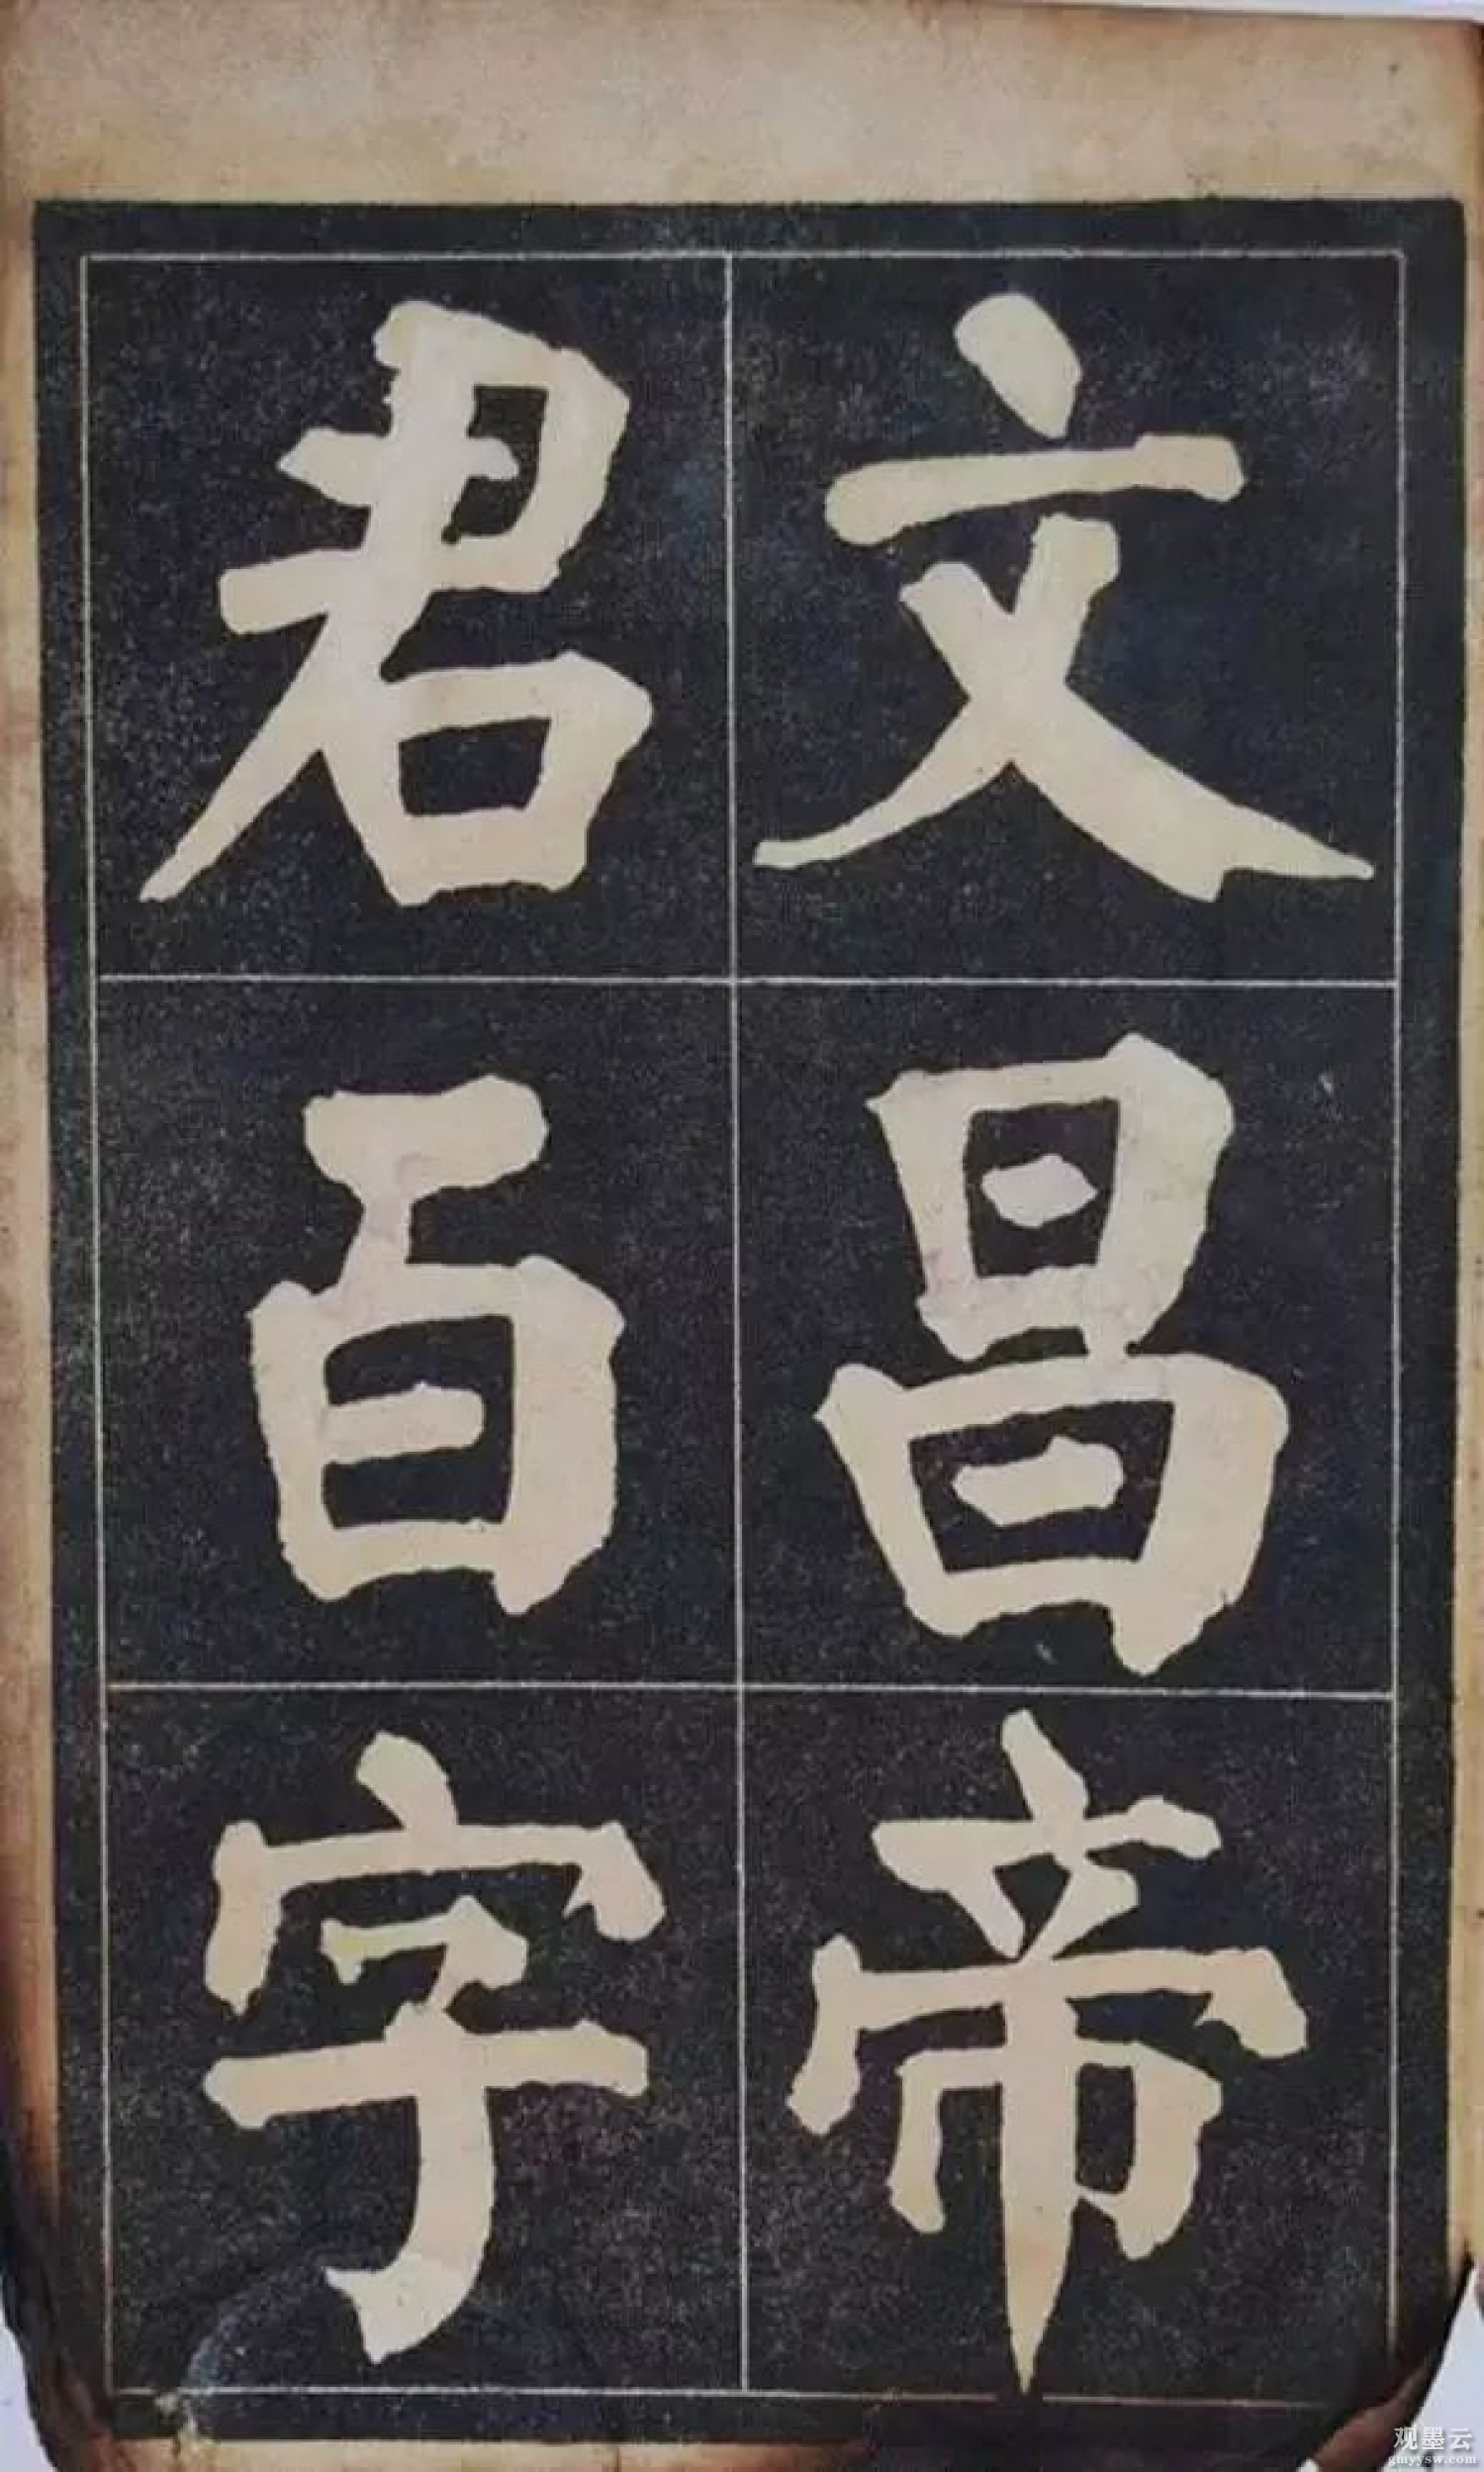 文昌帝
君百字
观墨云
gmyysw.com